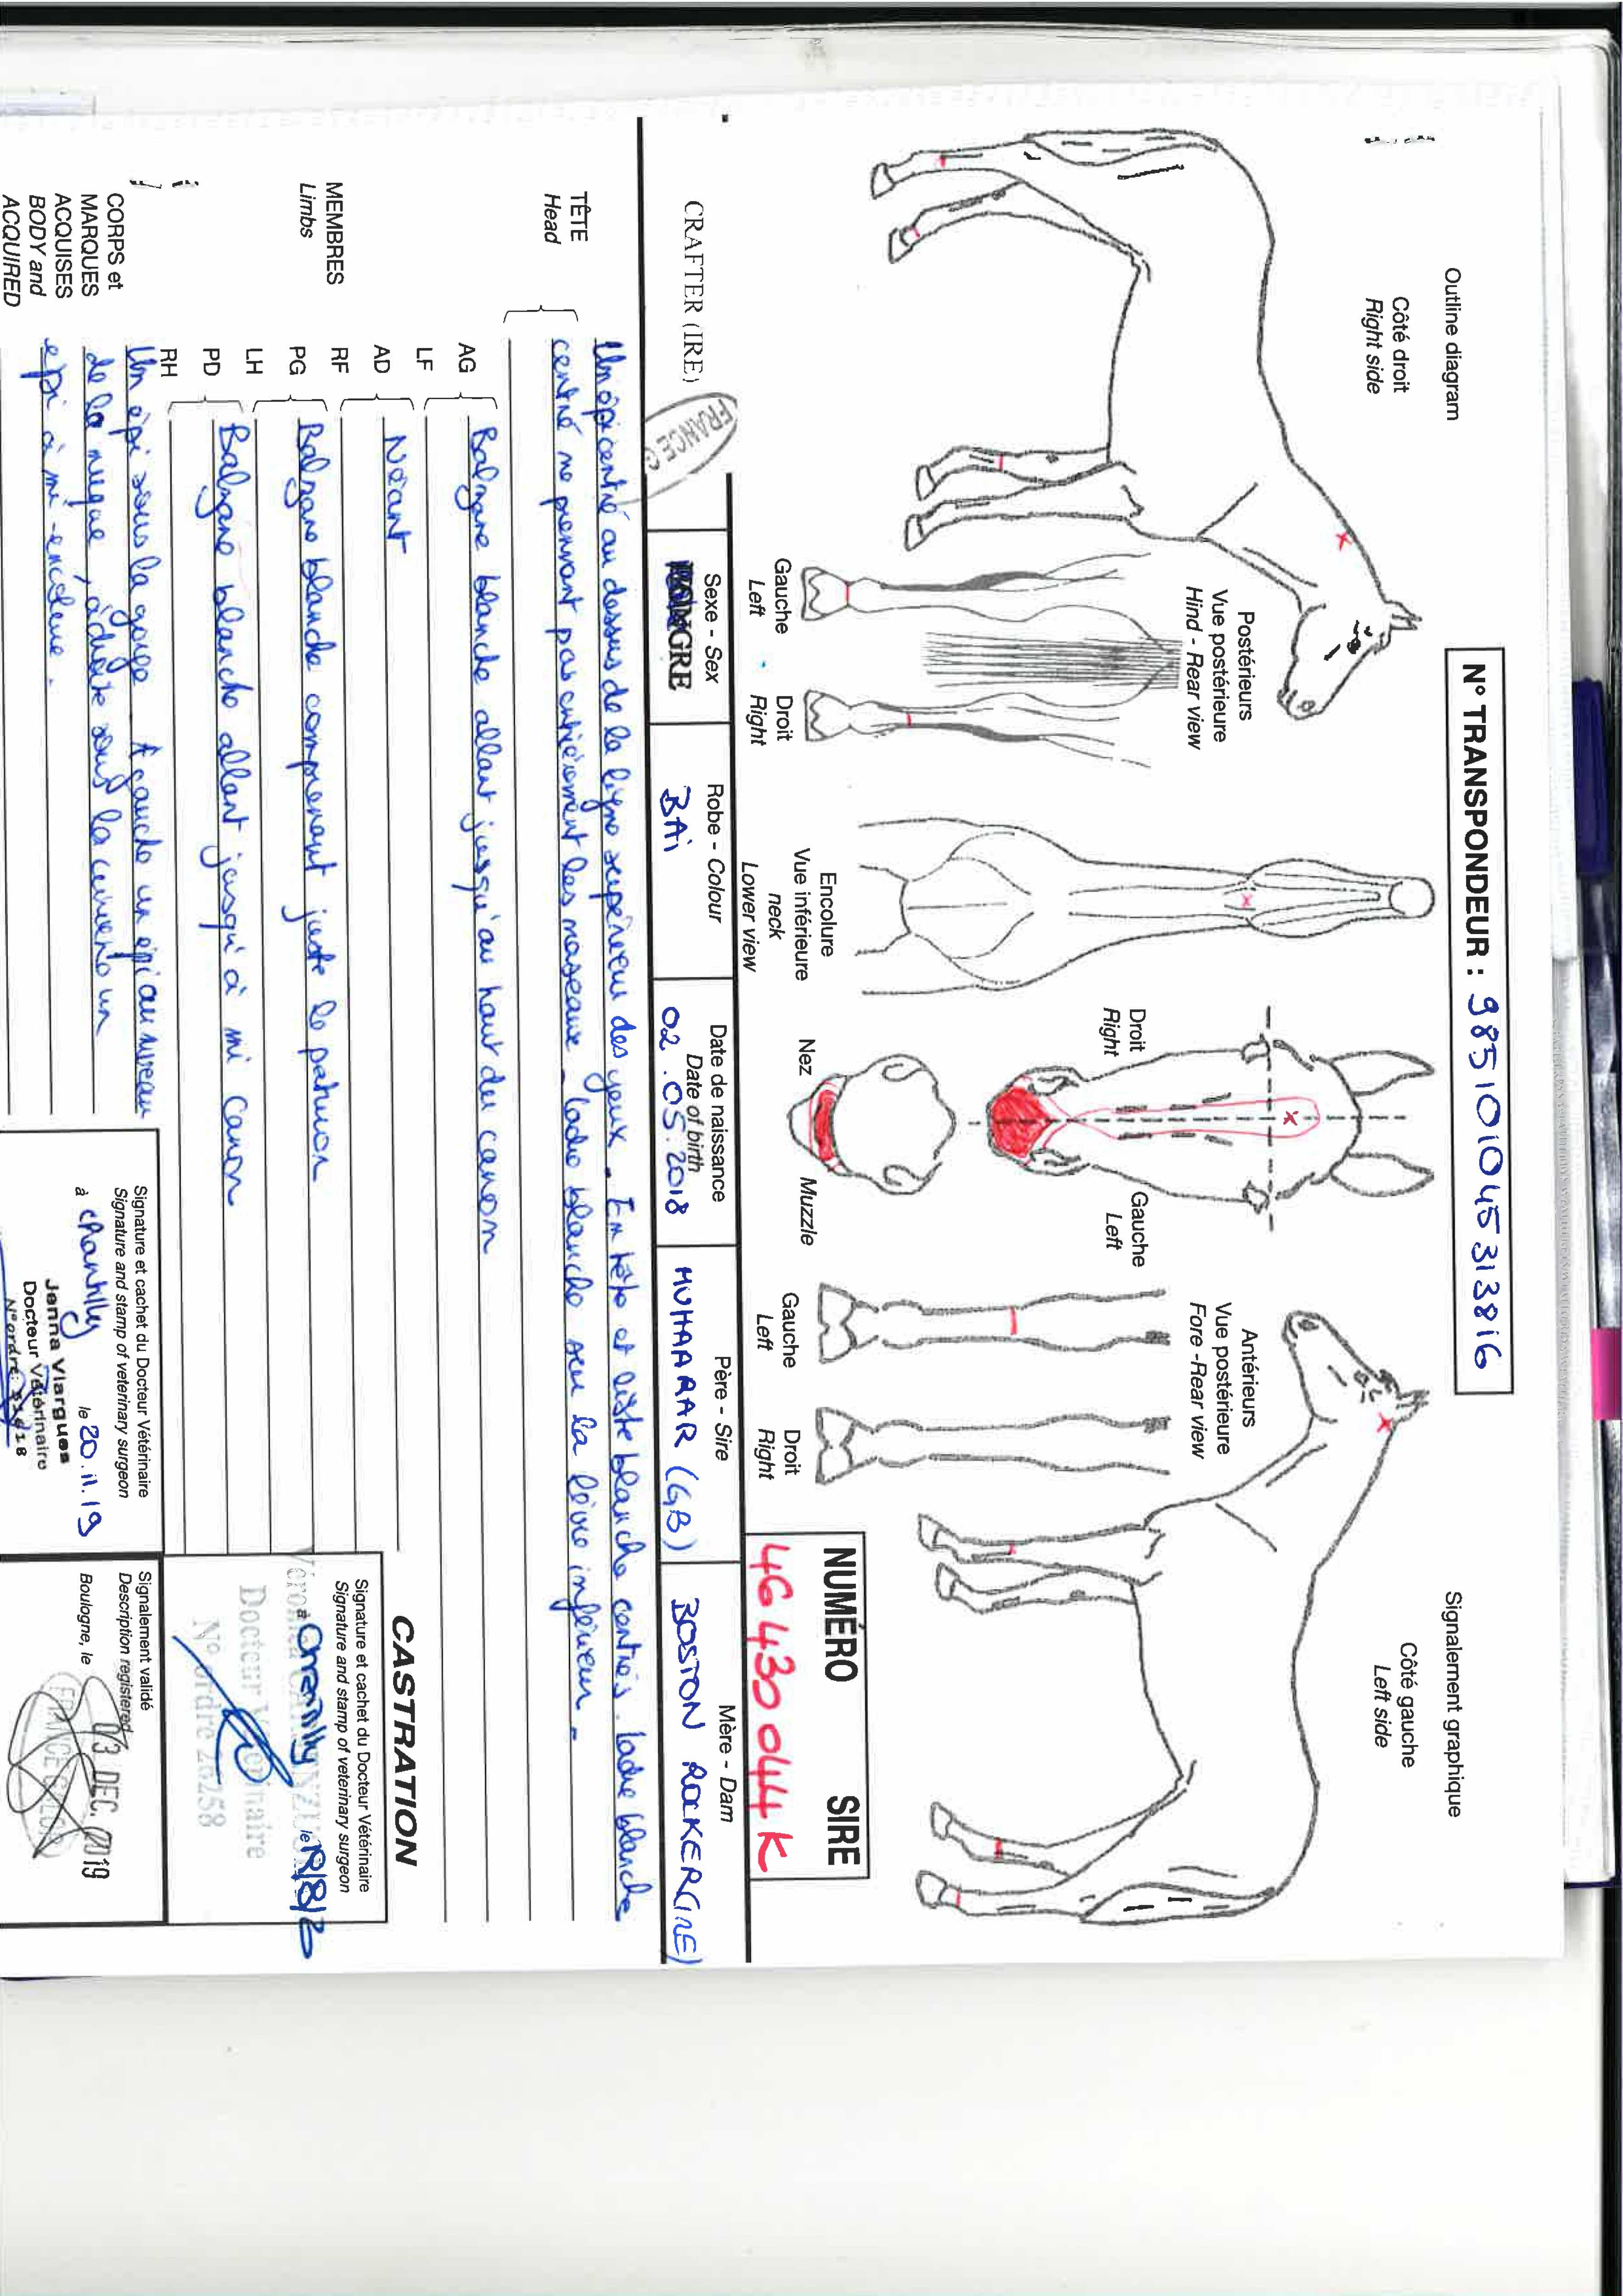 Outline diagram
Côté droit
Right side
N° TRANSPONDEUR : 985101045313816
Signalement graphique
Côté gauche
Left side
Postérieurs
Vue postérieure
Hind - Rear view
Gauche
Left
Droit
Right
Encolure
Vue inférieure
neck
Lower view
Droit
Right
Gauche
Left
Nez
Muzzle
Antérieurs
Vue postérieure
Fore - Rear view
Gauche
Left
Droit
Right
NUMÉRO SIRE
46 430 044 K
CRAFTER (IRE)
FRANCE G
Sexe - Sex
HONGRE
Robe - Colour
BAi
Date de naissance
Date of birth
02.05.2018
Père - Sire
MUHAARAR (GB)
Mère - Dam
BOSTON ROCKER (IRE)
TÊTE
Head
Un épi centré au dessus de la ligne supérieure des yeux. En tête et liste blanche centrés. ladre blanche
centré ne prenant pas entièrement les naseaux. ladre blanche sur la lèvre inférieur.
MEMBRES
Limbs
AG
LF
Balzane blanche allant jusqu'au haut du canon
AD
RF
Néant
PG
LH
Balzane blanche comprenant juste le paturon
PD
RH
Balzane blanche allant jusqu'à mi canon
CORPS et
MARQUES
ACQUISES
BODY and
ACQUIRED
Un épi sous la gorge. A gauche un épi au niveau
de la nuque, à droite sous la crinière un
epi à mi-encolure.
Signature et cachet du Docteur Vétérinaire
Signature and stamp of veterinary surgeon
à chantilly le 20.11.19
Jenna Viargues
Docteur Vétérinaire
N° ordre:
CASTRATION
Signature et cachet du Docteur Vétérinaire
Signature and stamp of veterinary surgeon
à Chantilly le
Docteur Vétérinaire
N° ordre 26258
Signalement validé
Description registered
Boulogne, le 03 DEC. 2019
FRANCE GALOP